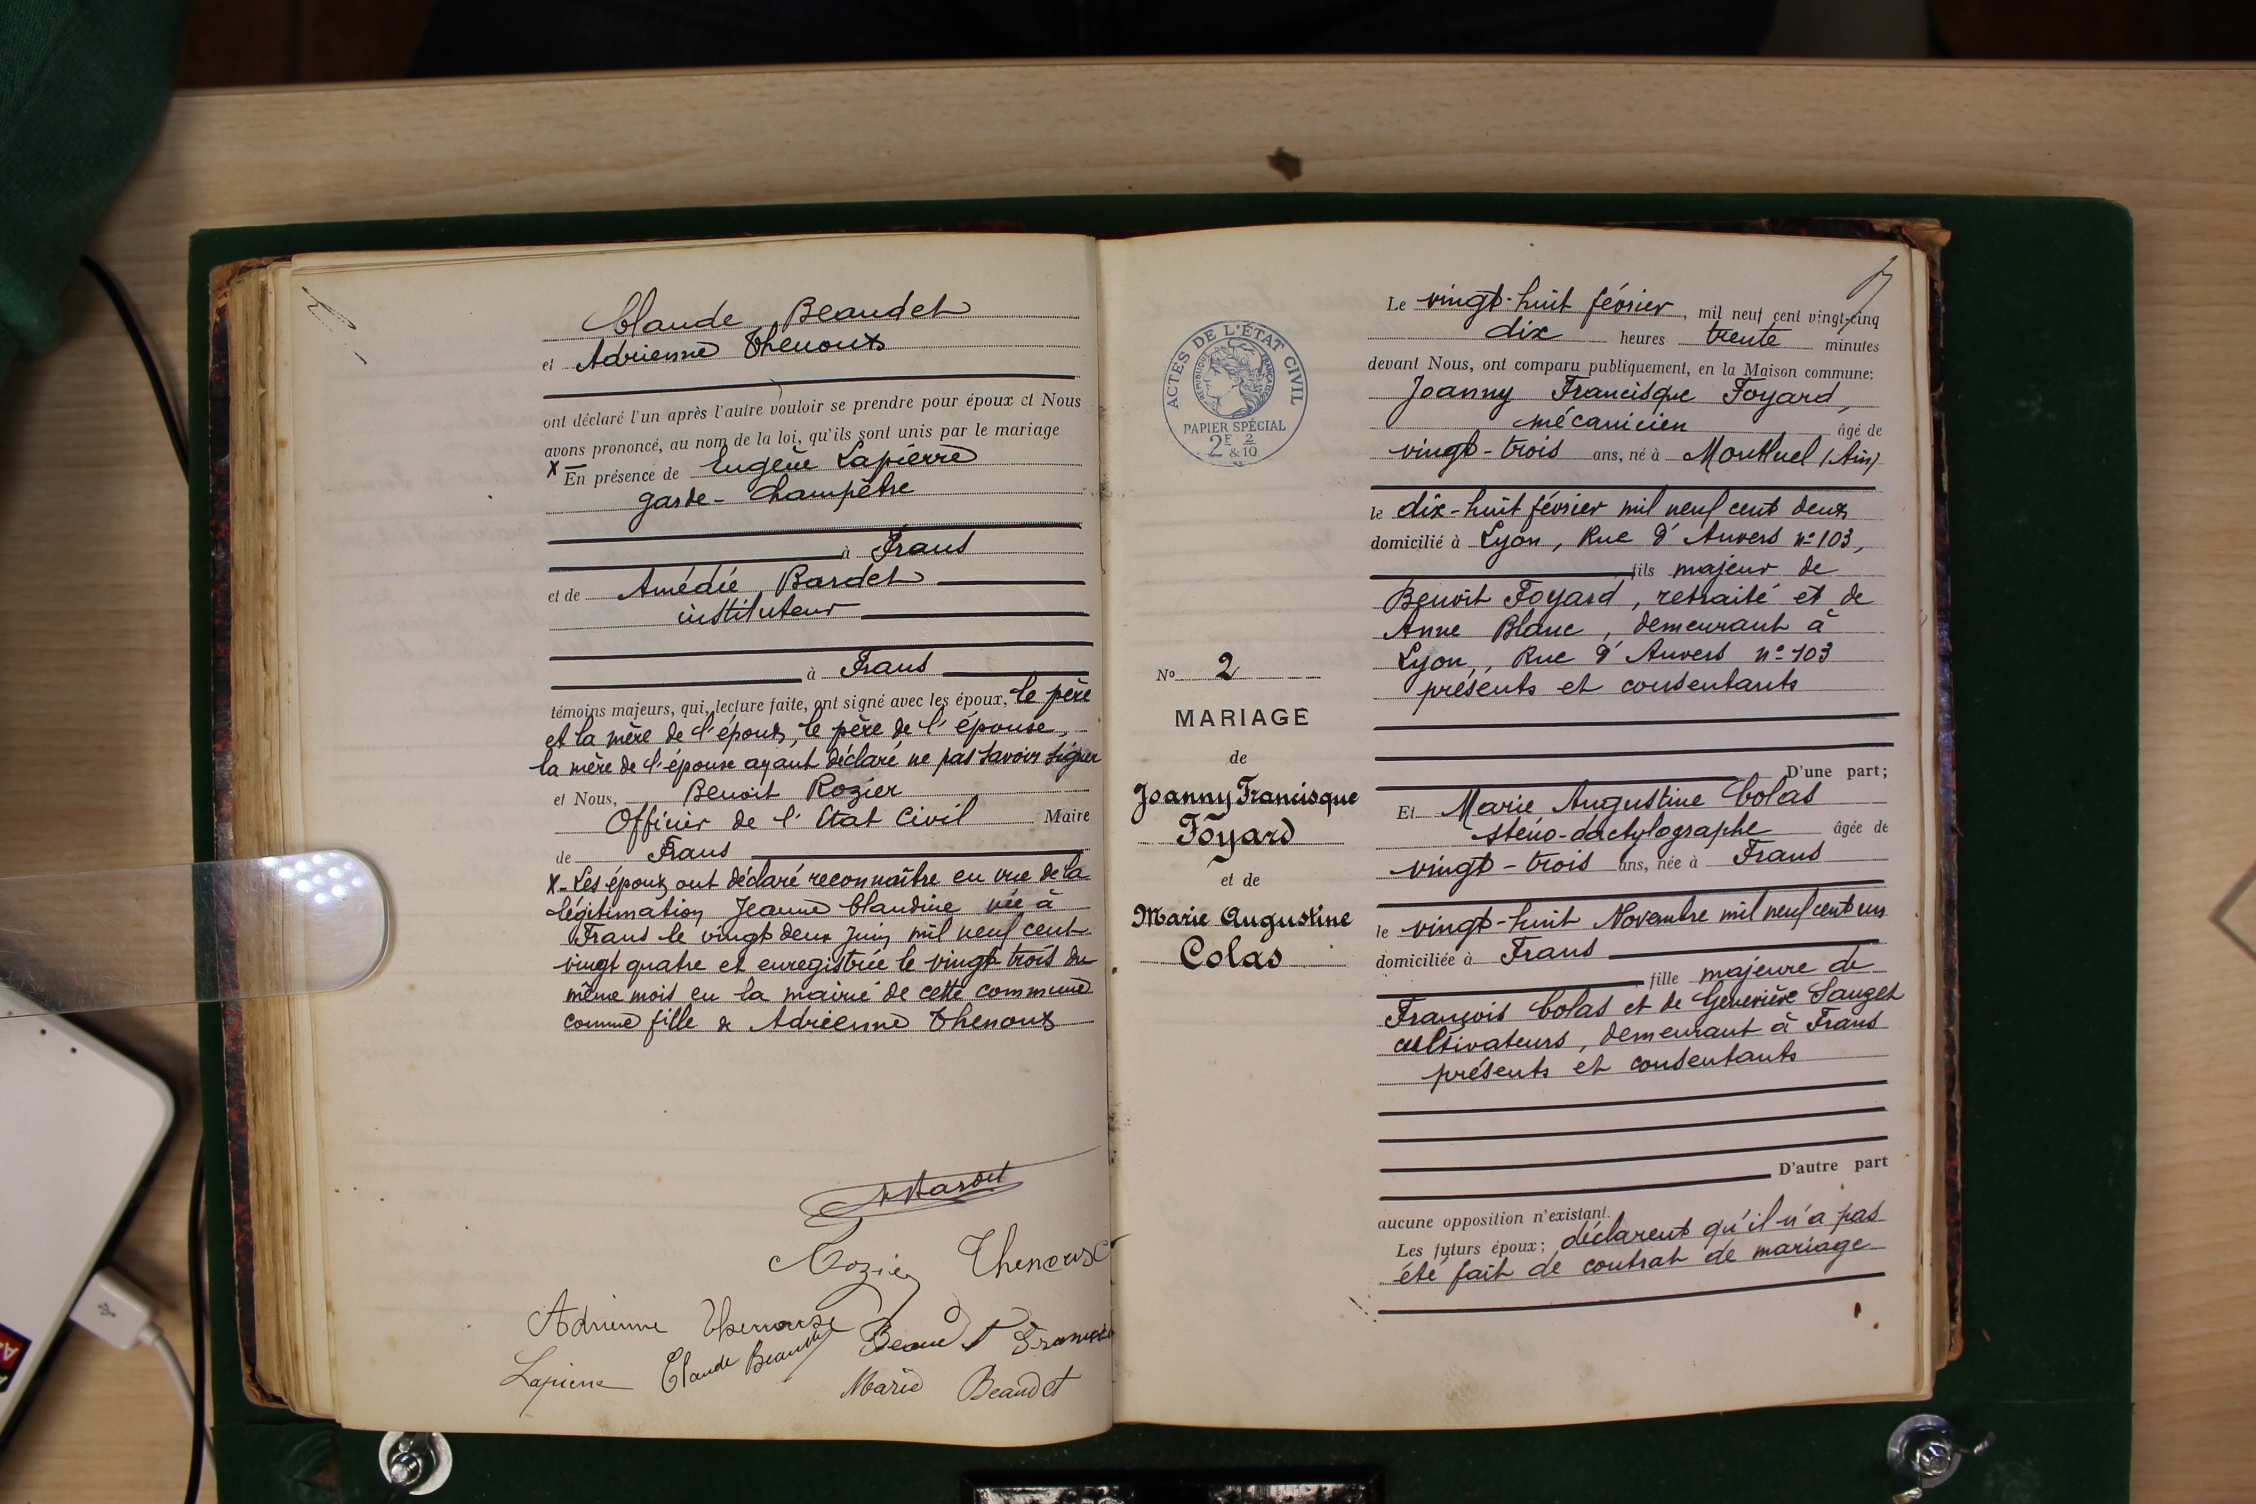 Claude Beaudet
et Adrienne Thenoux
ont déclaré l'un après l'autre vouloir se prendre pour époux et Nous
avons prononcé, au nom de la loi, qu'ils sont unis par le mariage
X En présence de Eugène Lapierre
garde-champêtre
à Frans
et de Amédée Bardet
instituteur
à Frans
témoins majeurs, qui, lecture faite, ont signé avec les époux, le père
et la mère de l'époux, le père de l'épouse,
la mère de l'épouse ayant déclaré ne pas savoir signer
et Nous, Benoit Rozier
Officier de l'Etat Civil Maire
de Frans
X- Les époux ont déclaré reconnaître en vue de la
légitimation Jeanne Claudine née à
Frans le vingt deux Juin mil neuf cent
vingt quatre et enregistrée le vingt trois du
même mois en la mairie de cette commune
comme fille de Adrienne Thenoux
Bardet
Rozier Thenoux
Adrienne Thenoux
Lapierre Claude Beaudet Beaudet François
Marie Beaudet
ACTES DE L'ÉTAT CIVIL
RÉPUBLIQUE FRANÇAISE
PAPIER SPÉCIAL
2E 2/10
&
No 2
MARIAGE
de
Joanny Francisque
Foyard
et de
Marie Augustine
Colas
Le vingt-huit février, mil neuf cent vingt-cinq
dix heures trente minutes
devant Nous, ont comparu publiquement, en la Maison commune:
Joanny Francisque Foyard,
mécanicien âgé de
vingt-trois ans, né à Montluel (Ain)
le dix-huit février mil neuf cent deux
domicilié à Lyon, Rue d'Anvers n° 103,
fils majeur de
Benoit Foyard, retraité et de
Anne Blanc, demeurant à
Lyon, Rue d'Anvers n° 103
présents et consentants
D'une part;
Et Marie Augustine Colas
sténo-dactylographe âgée de
vingt-trois ans, née à Frans
le vingt-huit Novembre mil neuf cent un
domiciliée à Frans
fille majeure de
François Colas et de Geneviève Sauget
cultivateurs, demeurant à Frans
présents et consentants
D'autre part
aucune opposition n'existant.
Les futurs époux; déclarent qu'il n'a pas
été fait de contrat de mariage